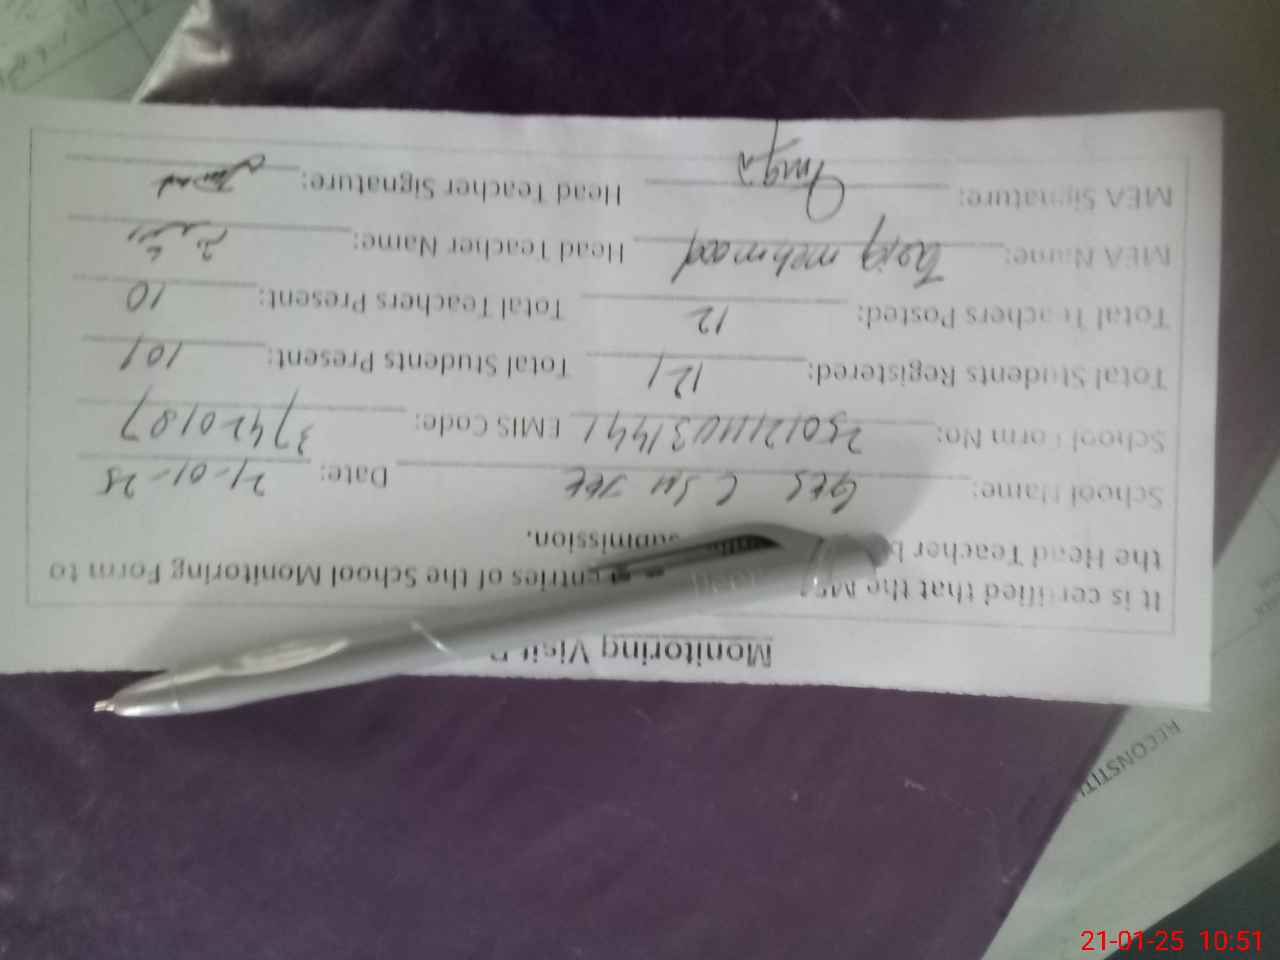 Monitoring Visit
It is certified that the entries of the School Monitoring Form to
the Head Teacher submission.
School Name: GES Date: 21-01-25
School Form No: EMIS Code: 37420187
Total Students Registered: 121 Total Students Present: 101
Total Teachers Posted: 12 Total Teachers Present: 10
MEA Name: Tariq mehmood Head Teacher Name:
MEA Signature: Head Teacher Signature:
RECONSTIT
21-01-25 10:51